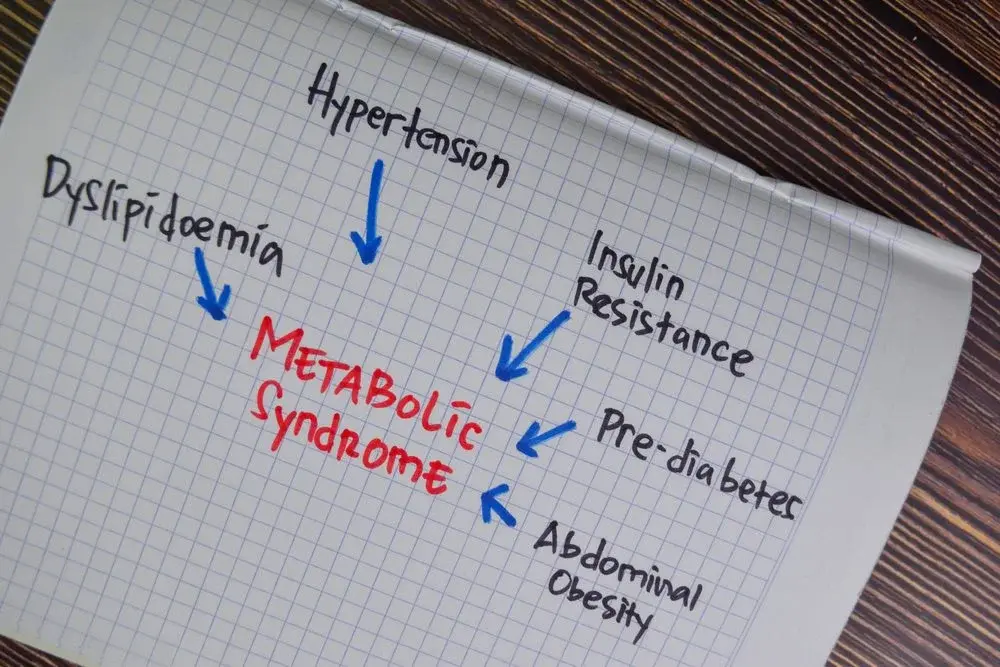 Hypertension
Dyslipidoemia
Insulin
Resistance
METABolic
SyndROME
Pre-diabetes
Abdominal
Obesity